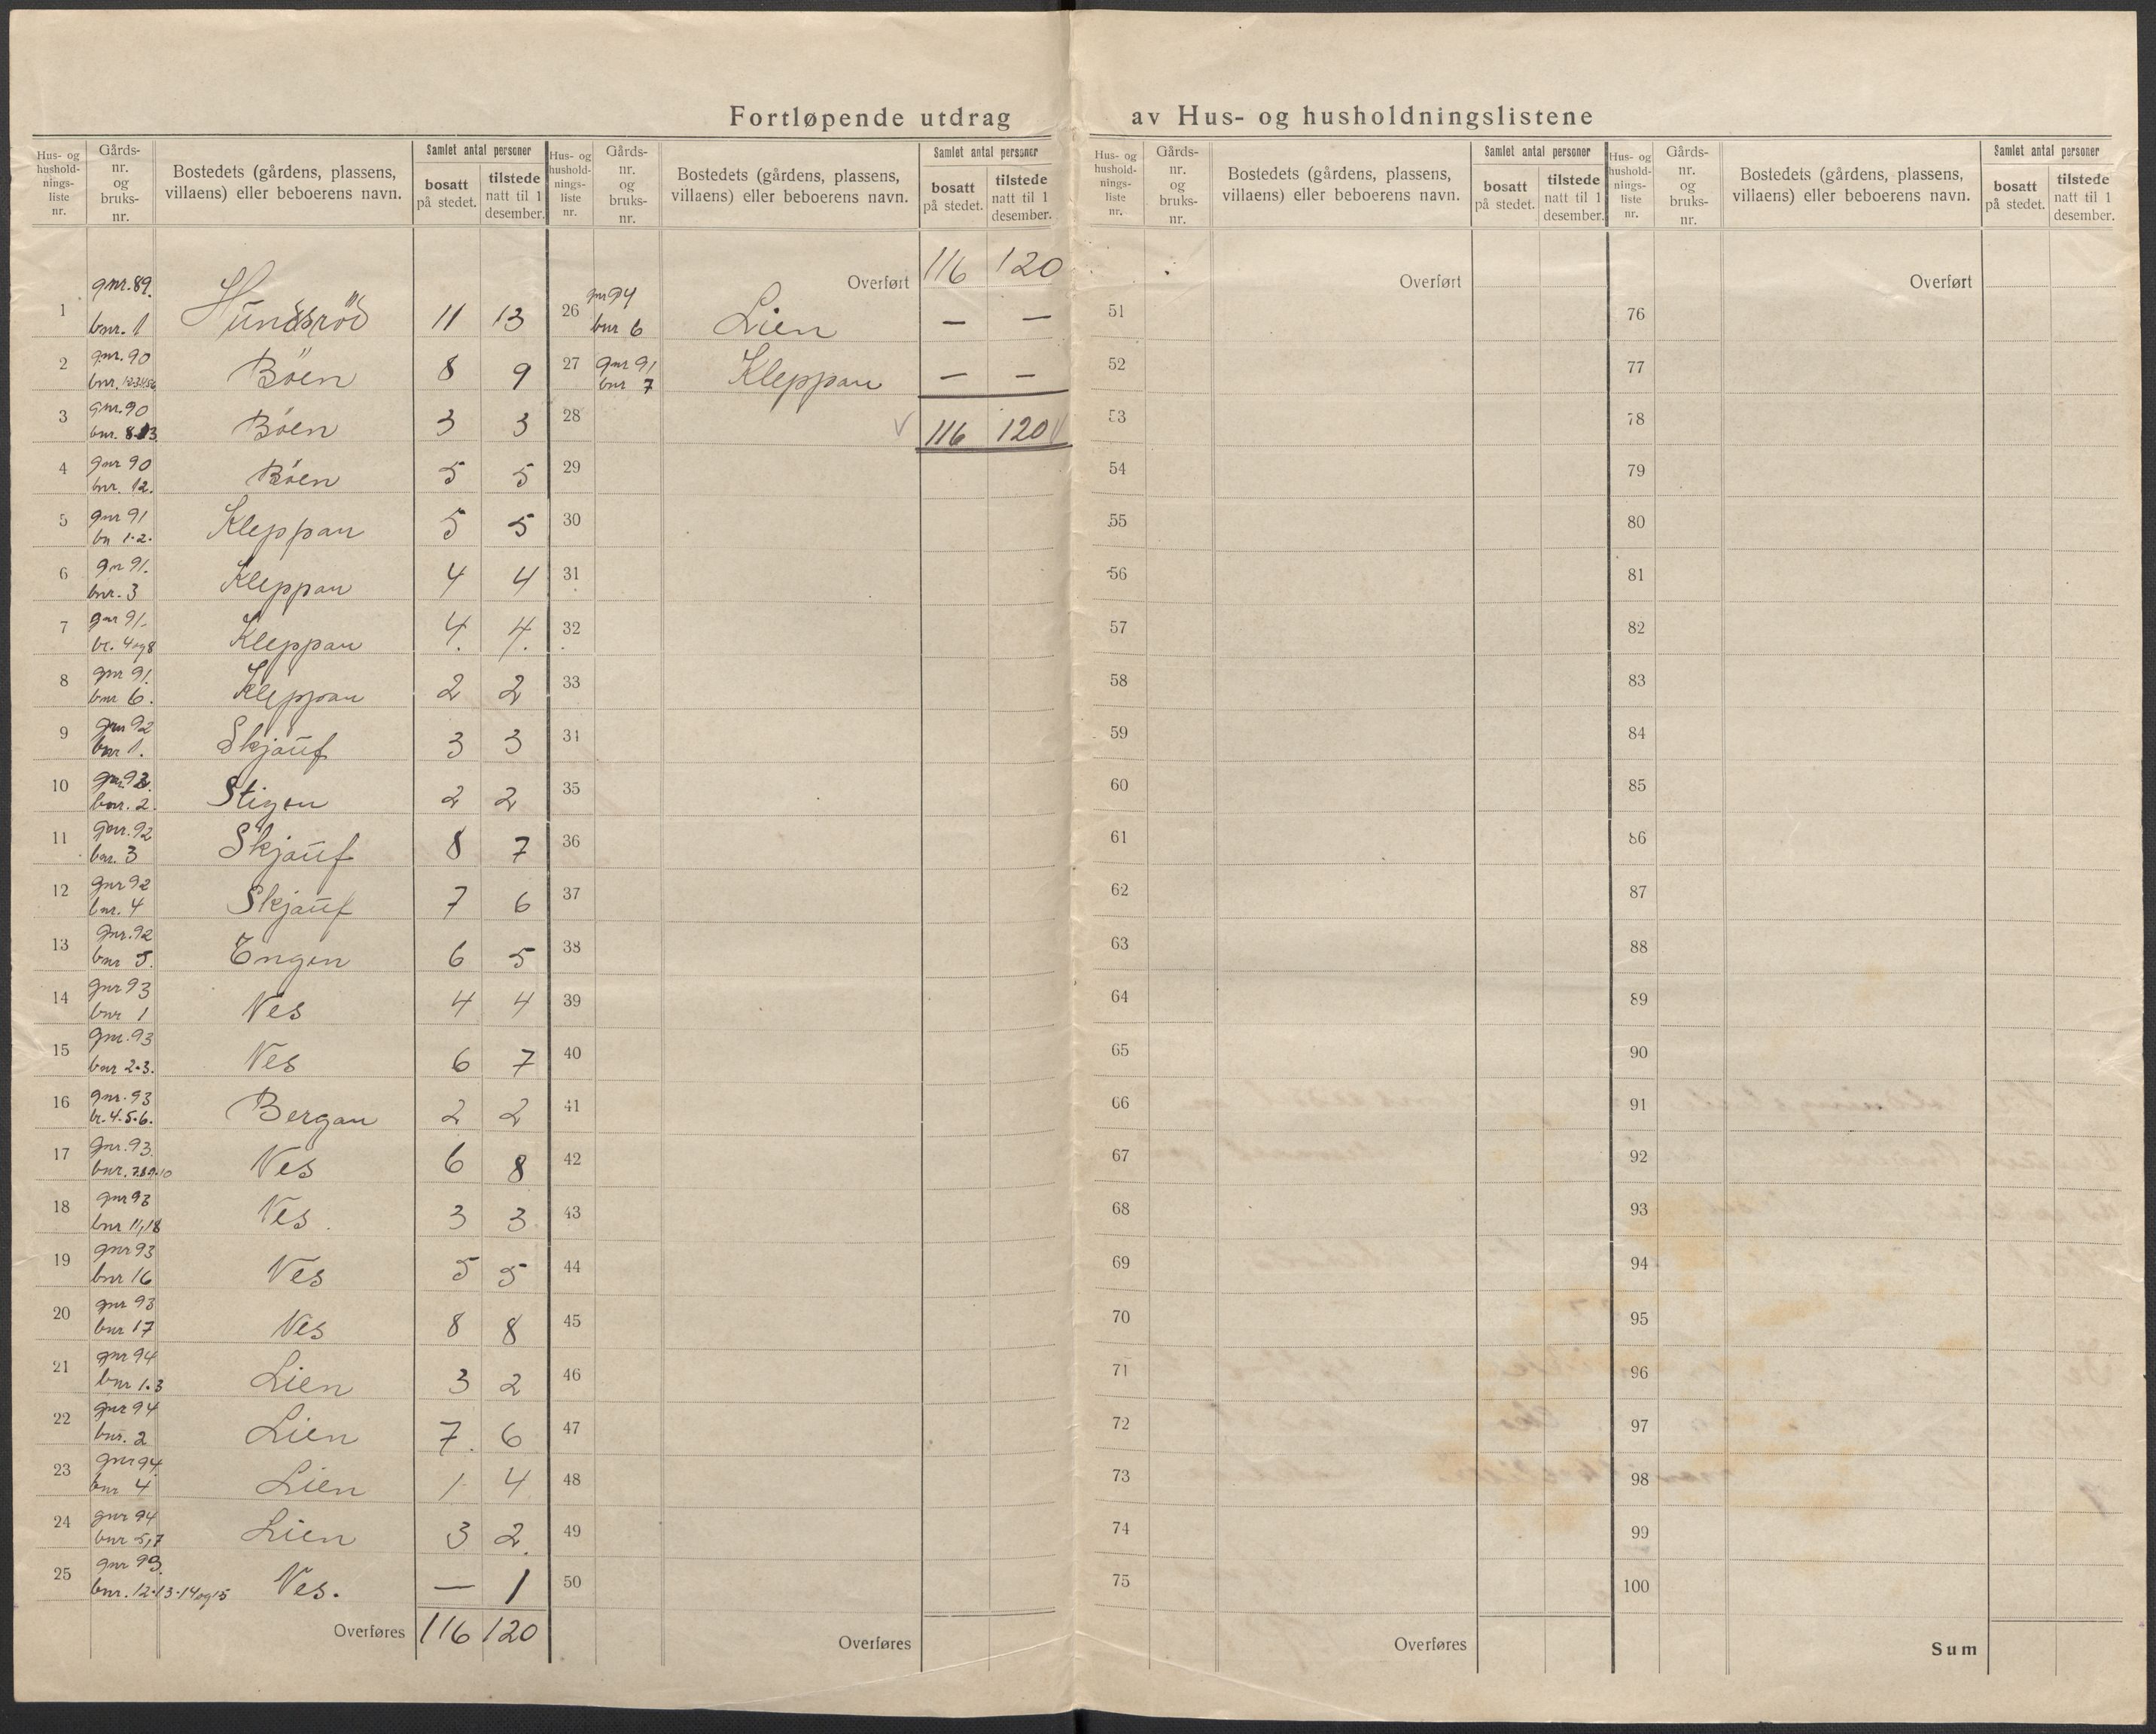 Fortløpende utdrag av Hus- og husholdningslistene
Hus- og husholdnings-liste nr. Gårds-nr. og bruks-nr. Bostedets (gårdens, plassens, villaens) eller beboerens navn. Samlet antal personer bosatt på stedet. tilstede natt til 1 desember.
1 gnr. 89. bnr. 1 Hundsröd 11 13
2 gnr. 90 bnr. Böen 8 9
3 gnr. 90 bnr. Böen 3 3
4 gnr 90 bnr. 12. Böen 5 5
5 gnr 91 bn 1-2. Kleppan 5 5
6 gnr 91. bnr. 3 Kleppan 4 4
7 gnr 91. br. 4 og 8 Kleppan 4. 4.
8 gnr 91. bnr 6. Kleppan 2 2
9 gnr 92 bnr 1. Skjauf 3 3
10 bnr. 2. Stigen 2 2
11 gnr. 92 bnr. 3 Skjauf 8 7
12 gnr 92 bnr. 4 Skjauf 7 6
13 gnr. 92 bnr 5. Engen 6 5
14 gnr 93 bnr 1 Nes 4 4
15 gnr. 93 bnr 2-3. Nes 6 7
16 gnr. 93 br. 4-5-6. Bergan 2 2
17 gnr. 93. bnr. 7.8.9.10 Nes 6 8
18 gnr 93 bnr 11,18 Nes. 3 3
19 gnr 93 bnr 16 Nes 5 5
20 gnr 93 bnr 17 Nes 8 8
21 gnr 94 bnr 1.3 Lien 3 2
22 gnr 94 bnr. 2 Lien 7. 6
23 gnr 94. bnr 4 Lien 1 4
24 gnr 94 bnr 5,7 Lien 3 2.
25 gnr 93. bnr. 12-13-14 og 15 Nes. — 1
Overføres 116 120
Hus- og husholdnings-liste nr. Gårds-nr. og bruks-nr. Bostedets (gårdens, plassens, villaens) eller beboerens navn. Samlet antal personer bosatt på stedet. tilstede natt til 1 desember.
Overført 116 120
26 gnr 94 bnr 6 Lien — —
27 gnr 91 bnr 7 Kleppan — —
28 116 120
29
30
31
32
33
34
35
36
37
38
39
40
41
42
43
44
45
46
47
48
49
50
Overføres
Hus- og husholdnings-liste nr. Gårds-nr. og bruks-nr. Bostedets (gårdens, plassens, villaens) eller beboerens navn. Samlet antal personer bosatt på stedet. tilstede natt til 1 desember.
Overført
51
52
53
54
55
56
57
58
59
60
61
62
63
64
65
66
67
68
69
70
71
72
73
74
75
Overføres
Hus- og husholdnings-liste nr. Gårds-nr. og bruks-nr. Bostedets (gårdens, plassens, villaens) eller beboerens navn. Samlet antal personer bosatt på stedet. tilstede natt til 1 desember.
Overført
76
77
78
79
80
81
82
83
84
85
86
87
88
89
90
91
92
93
94
95
96
97
98
99
100
Sum